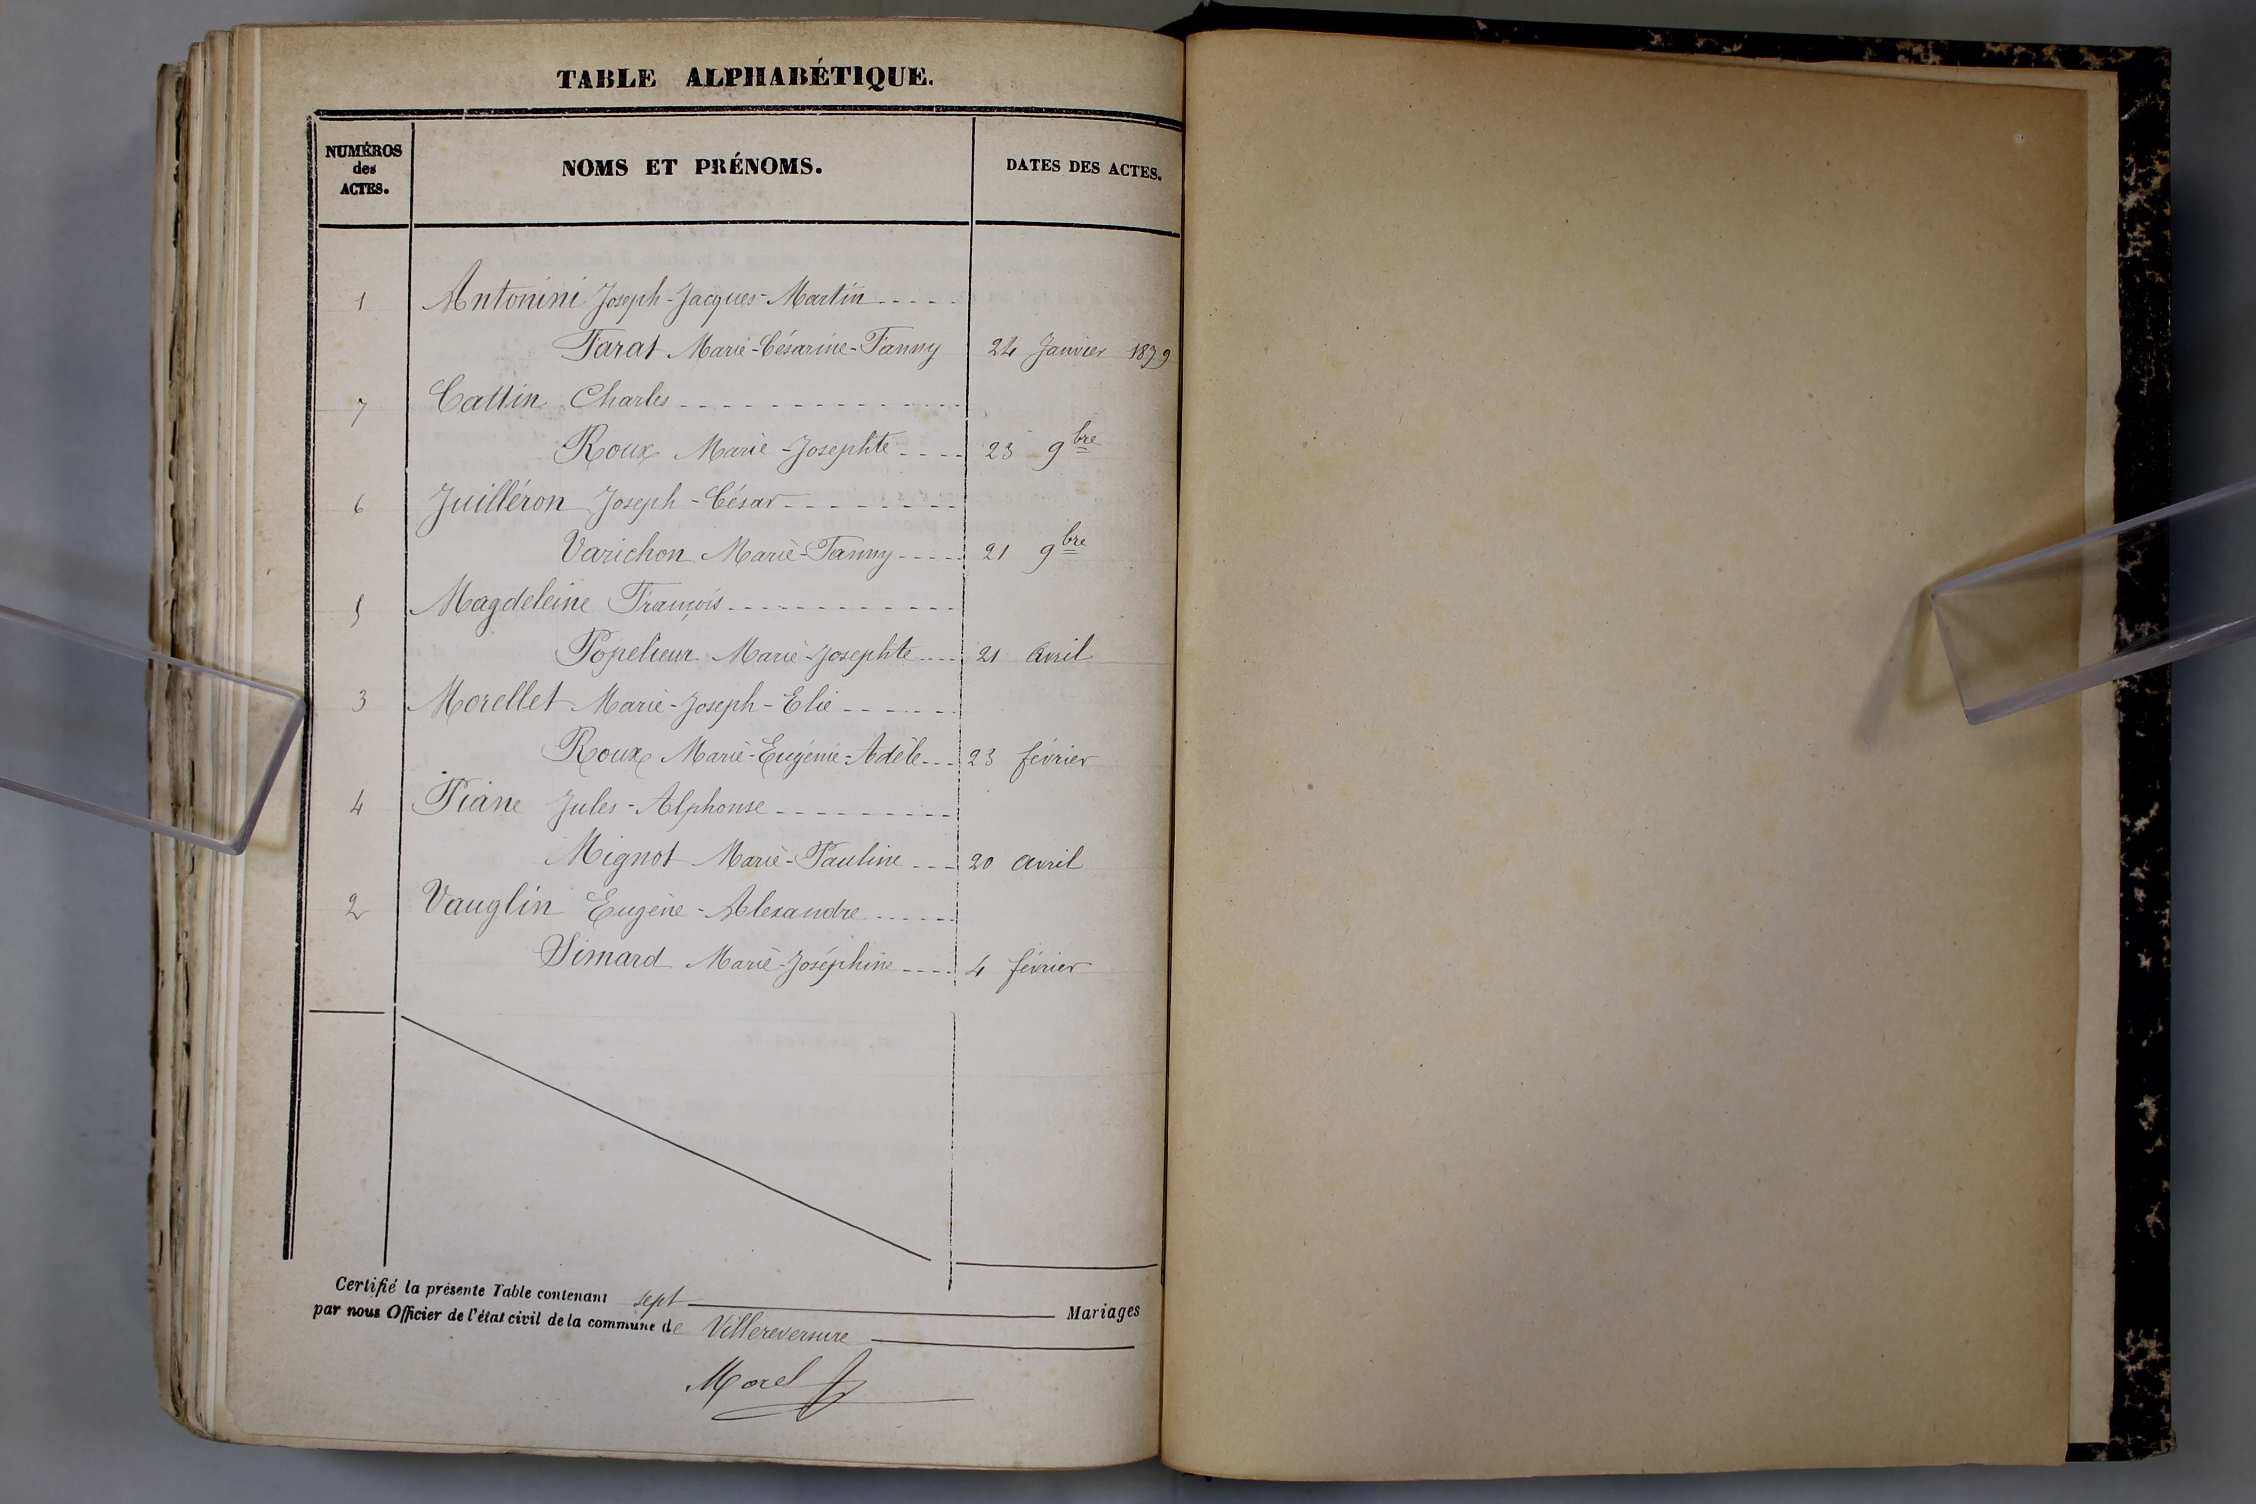 TABLE ALPHABÉTIQUE.
NUMÉROS des ACTES. NOMS ET PRÉNOMS. DATES DES ACTES.
1 Antonini Joseph-Jacques-Martin
Farat Marie-Césarine-Fanny 24 Janvier 1879
7 Cattin Charles
Roux Marie-Josephte 23 9bre
6 Juilléron Joseph-César
Varichon Marie-Fanny 21 9bre
5 Magdeleine François
Popelieur Marie-Josephte 21 avril
3 Morellet Marie-Joseph-Elie
Roux Marie-Eugénie-Adèle 23 février
4 Piane Jules-Alphonse
Mignot Marie-Pauline 20 avril
2 Vauglin Eugène-Alexandre
Simard Marie-Joséphine 4 février
Certifié la présente Table contenant sept Mariages
par nous Officier de l'état civil de la commune de Villereversure
Morel